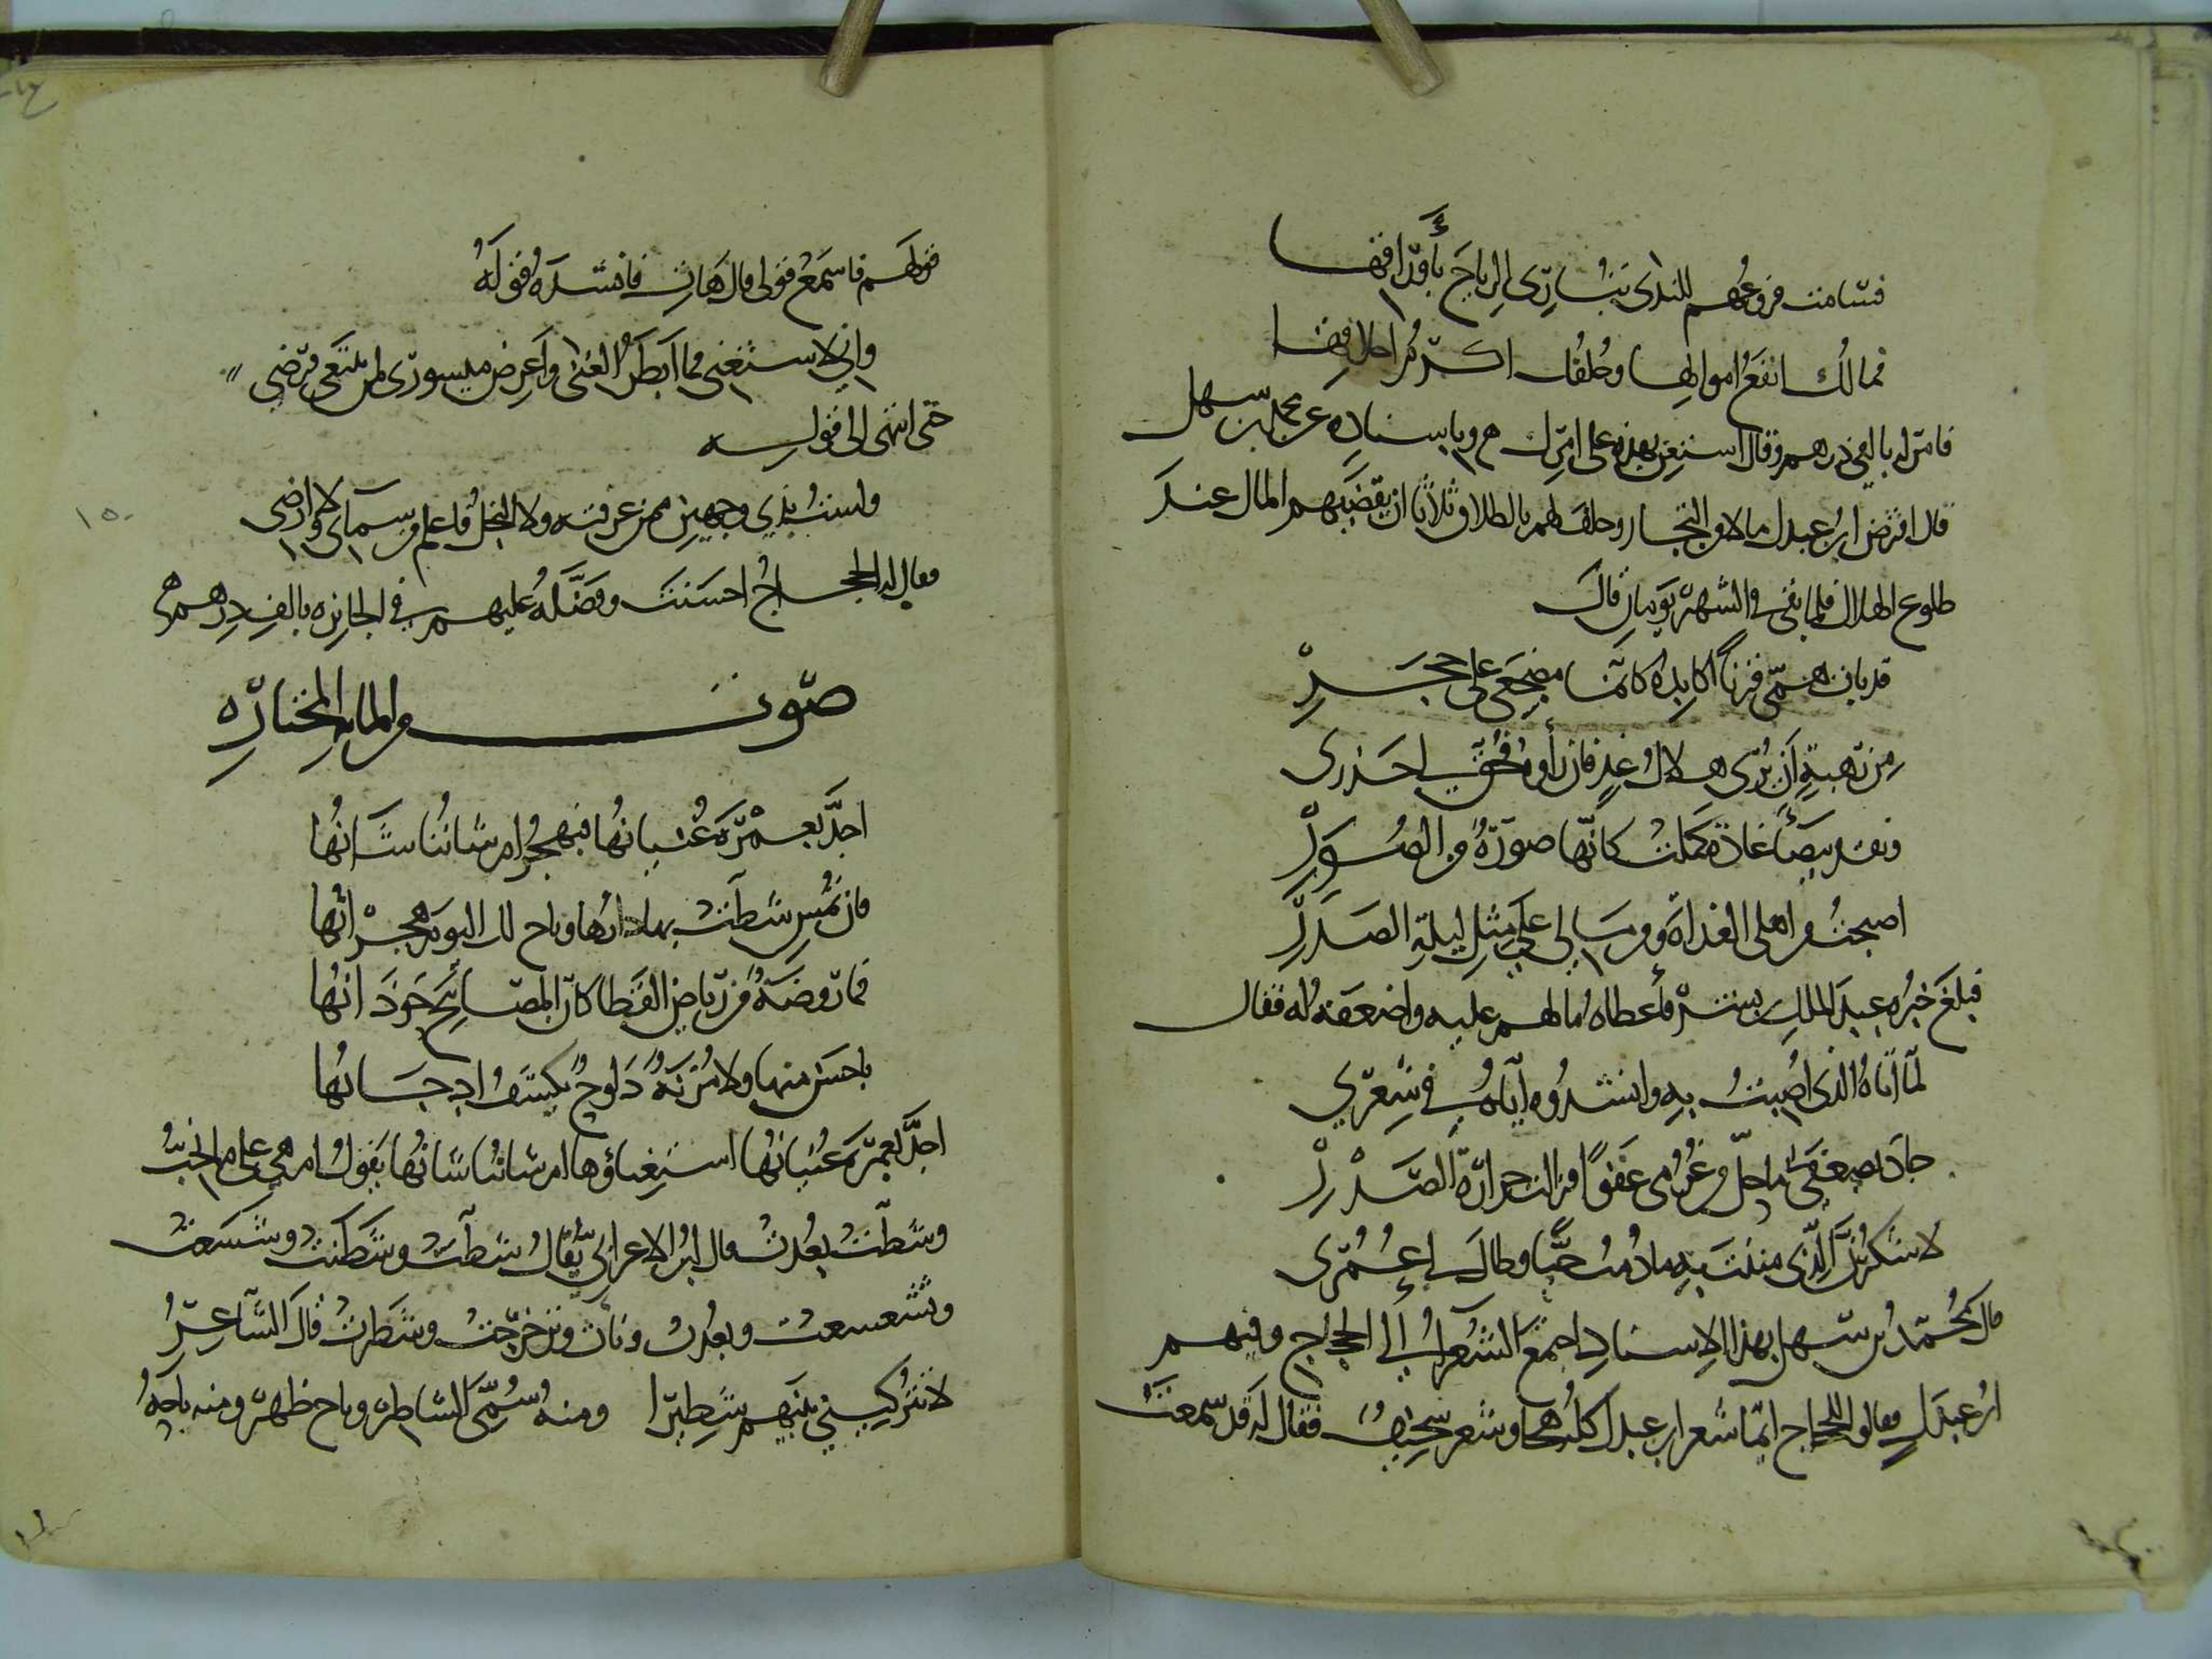 فتسامت فروعهم للندى تباري الرياح بأوراقها
فمالك انفع اموالها وخلقك اكرم اخلاقها
فامر له بالفي درهم وقال استعن بهذه على امرك وباسناده عن محمد بن سهل
قال اقترض ابن عبدل مالا من التجار وحلف لهم بالطلاق ثلاثا ان يقضيهم المال عند
طلوع الهلال فلما بقي من الشهر يومان قال
قد بات همي قرنا اكابده كانما مضجعي على حجر
من رهبة ان يرى هلال غد فان رأوه فحق لي حذري
وفقد بيضاء غادة كملت كانها صورة من الصور
اصبحت من اهلي الغداة ومن مالي على مثل ليلة الصدر
فبلغ خبره عبد الملك بن بشر فأعطاه مالهم عليه واضعفه له فقال
لما اتاه الذي اصبت به وانشدوه اياه في شعري
جاد بضعفي ما حل من غرمي عفوا فزالت حرارة الصدر
لا شكرن الذي مننت به ما دمت حيا وطال لي عمري
قال محمد بن سهل بهذا الاسناد اجتمع الشعراء الى الحجاج وفيهم
ابن عبدل فقالوا للحجاج انما شعر ابن عبدل كله هجاء وشعر سخيف فقال له قد سمعت
قولهم فاسمع قولي قال هات فانشده قوله
واني لاستغني فما ابطر الغنى واعرض ميسوري لمن يبتغي قرضي
حتى انتهى الى قوله
ولست بذي وجهين ممن عرفته ولا البخل فاعلم من سمائي ولا ارضي
١٥٠
فقال له الحجاج احسنت وفضله عليهم في الجائزه بالف درهم
صوت من المايه المختاره
اجد بعمرة غنيانها فتهجر ام شاننا شانها
فان تمس شطت بها دارها وباح لك اليوم هجرانها
فما روضة من رياض القطا كان المصابيح حوذانها
باحسن منها ولا مزنة دلوح يكشف ادجانها
اجد بعمرة غنيانها استغناؤها ام شاننا شانها يقول ام هي على ما نحب
وشطت بعدت قال ابن الاعرابي يقال شطت وشطنت وشسعت
وتشعسعت وبعدت ونات وتزحزحت وشطرت قال الشاعر
لا تتركيني بينهم شطيرا ومنه سمي الشاطر وباح ظهر ومنه باحة